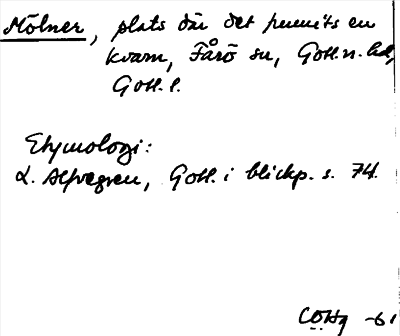 Mölner, plats där det funnits en
kvarn, Fårö sn, Gotl. n. hd,
Gotl. l.
Etymologi:
L. Alfvegren, Gotl. i blickp. s. 74.
COHg -61